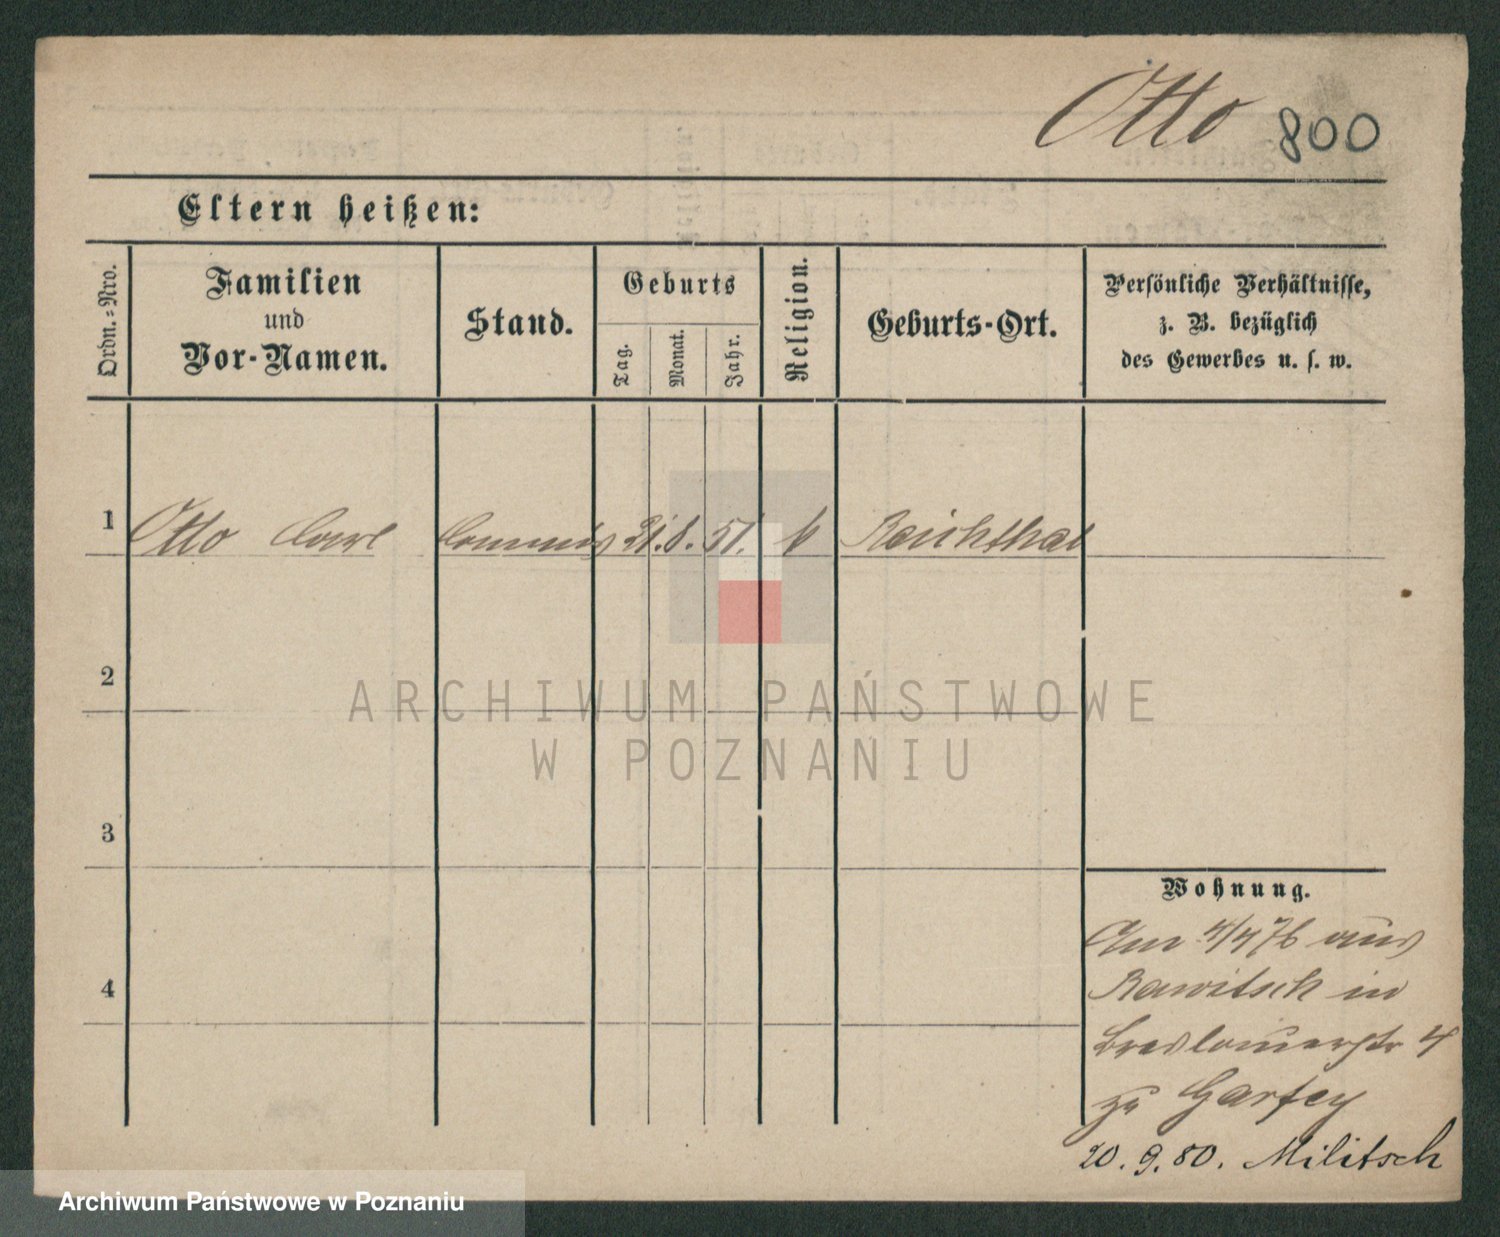 Otto 800
Eltern heißen:
Ordn.=Nro.
Familien
und
Vor-Namen.
Stand.
Geburts
Tag.
Monat.
Jahr.
Religion.
Geburts-Ort.
Persönliche Verhältnisse,
z. B. bezüglich
des Gewerbes u. s. w.
1 Otto Carl Commis 21. 8. 51. k Reichthal
2
ARCHIWUM PAŃSTWOWE
W POZNANIU
3
Wohnung.
Am 4/4 76 aus
4
Rawitsch in
Breslauerstr 4
zu
20. 9. 80. Militsch
Archiwum Państwowe w Poznaniu